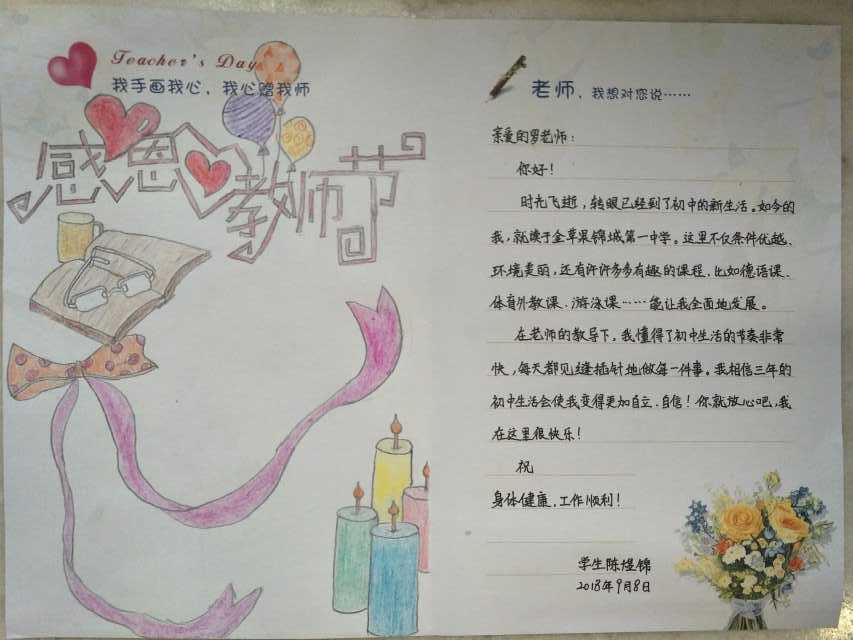 Teacher's Day
我手画我心，我心赠我师
感恩教师节
老师，我想对您说……
亲爱的罗老师：
你好！
时光飞逝，转眼已经到了初中的新生活。如今的
我，就读于金苹果锦城第一中学。这里不仅条件优越、
环境美丽，还有许许多多有趣的课程，比如德语课、
体育外教课、游泳课……能让我全面地发展。
在老师的教导下，我懂得了初中生活的节奏非常
快，每天都见缝插针地做每一件事。我相信三年的
初中生活会使我变得更加自立、自信！你就放心吧，我
在这里很快乐！
祝
身体健康，工作顺利！
学生陈煜锦
2018年9月8日